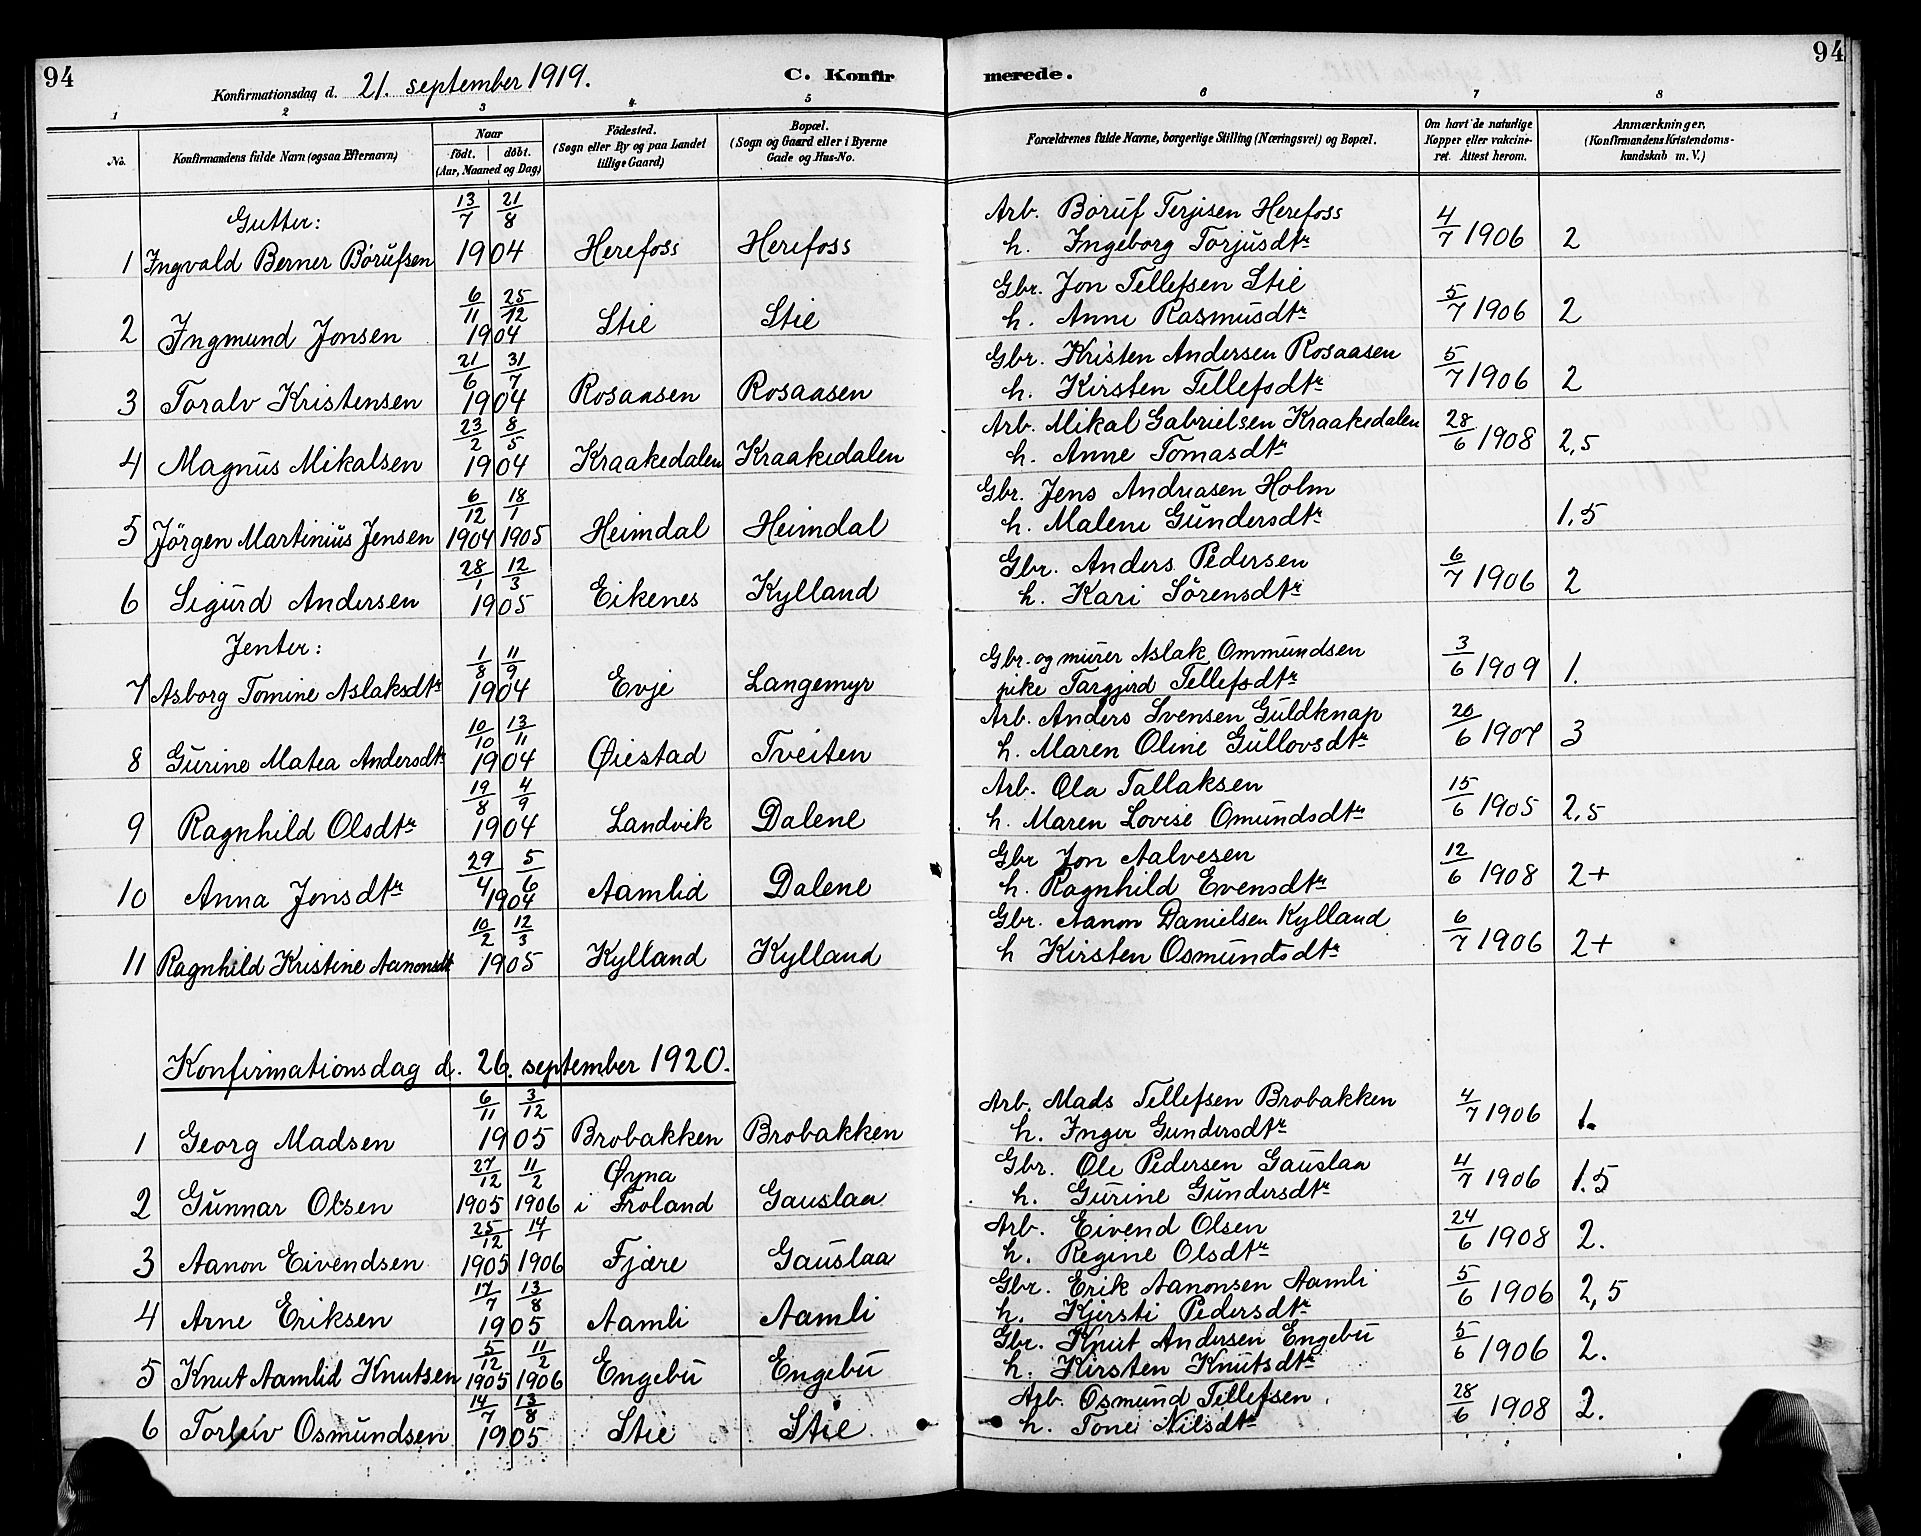 94
Konfirmationsdag d. 21. september 1919.
C. Konfir
merede.
94
1 2 3 4 5 6 7 8
No.
Konfirmandens fulde Navn (ogsaa Efternavn)
Naar
født. | døbt.
(Aar, Maaned og Dag)
Fødested.
(Sogn eller By og paa Landet
tillige Gaard)
Bopæl.
(Sogn og Gaard eller i Byerne
Gade og Hus-No.
Forældrenes fulde Navne, borgerlige Stilling (Næringsvei) og Bopæl.
Om havt de naturlige
Kopper eller vakcine-
ret. Attest herom.
Anmærkninger,
(Konfirmandens Kristendoms-
kundskab m. V.)
Gutter:
13/7 21/8 Arb. Børuf Terjisen Herefoss
1 Ingvald Berner Børufsen 1904 Herefoss Herefoss h. Ingeborg Torjusdtr 4/7 1906 2
6/11 25/12 Gbr. Jon Tellefsen Stie
2 Ingmund Jonsen 1904 Stie Stie h. Anne Rasmusdtr 5/7 1906 2
21/6 31/7 Gbr. Kristen Andersen Rosaasen
3 Toralv Kristensen 1904 Rosaasen Rosaasen h. Kirsten Tellefsdtr 5/7 1906 2
23/2 8/5 Arb. Mikal Gabrielsen Kraakedalen
4 Magnus Mikalsen 1904 Kraakedalen Kraakedalen h. Anne Tomasdtr 28/6 1908 2,5
6/12 18/1 Gbr. Jens Andreasen Holm
5 Jörgen Martinius Jensen 1904 1905 Heimdal Heimdal h. Malene Gundersdtr 1,5
28/1 12/3 Gbr. Anders Pedersen
6 Sigurd Andersen 1905 Eikenes Kylland h. Kari Sörensdtr 6/7 1906 2
Jenter:
1/8 11/9 Gbr. og murer Aslak Ommundsen
7 Asborg Tomine Aslaksdtr 1904 Evje Langemyr pike Targjerd Tellefsdtr 3/6 1909 1.
10/10 13/11 Arb. Anders Svensen Guldknap
8 Gurine Matea Andersdtr 1904 Øiestad Tveiten h. Maren Oline Gullovsdtr 20/6 1907 3
19/8 4/9 Arb. Ola Tallaksen
9 Ragnhild Olsdtr 1904 Landvik Dalene h. Maren Lovise Omundsdtr 15/6 1905 2,5
29/4 5/6 Gbr Jon Aalvesen
10 Anna Jonsdtr 1904 Aamlid Dalene h. Ragnhild Evensdtr 12/6 1908 2+
10/2 12/3 Gbr. Aanon Danielsen Kylland
11 Ragnhild Kristine Aanonsdt 1905 Kylland Kylland h Kirsten Osmundsdtr 6/7 1906 2+
Konfirmationsdag d. 26. september 1920.
6/11 3/12 Arb. Mads Tellefsen Brobakken
1 Georg Madsen 1905 Brobakken Brobakken h. Inger Gundersdtr 4/7 1906 1.
27/12 11/2 Øyna Gbr. Ole Pedersen Gauslaa
2 Gunnar Olsen 1905 1906 i Froland Gauslaa h. Gurine Gundersdtr 4/7 1906 1.5
25/12 14/1 Arb. Eivend Olsen
3 Aanon Eivendsen 1905 1906 Fjære Gauslaa h. Regine Olsdtr 24/6 1908 2.
17/7 13/8 Gbr. Erik Aanonsen Aamli
4 Arne Eriksen 1905 Aamli Aamli h. Kjersti Pedersdtr 5/6 1906 2,5
5/12 11/2 Gbr. Knut Andersen Engebu
5 Knut Aamlid Knutsen 1905 1906 Engebu Engebu h. Kirsten Knutsdtr 5/6 1906 2.
14/7 13/8 Arb. Osmund Tellefsen
6 Torleiv Osmundsen 1905 Stie Stie h. Tone Nilsdtr 28/6 1908 2.